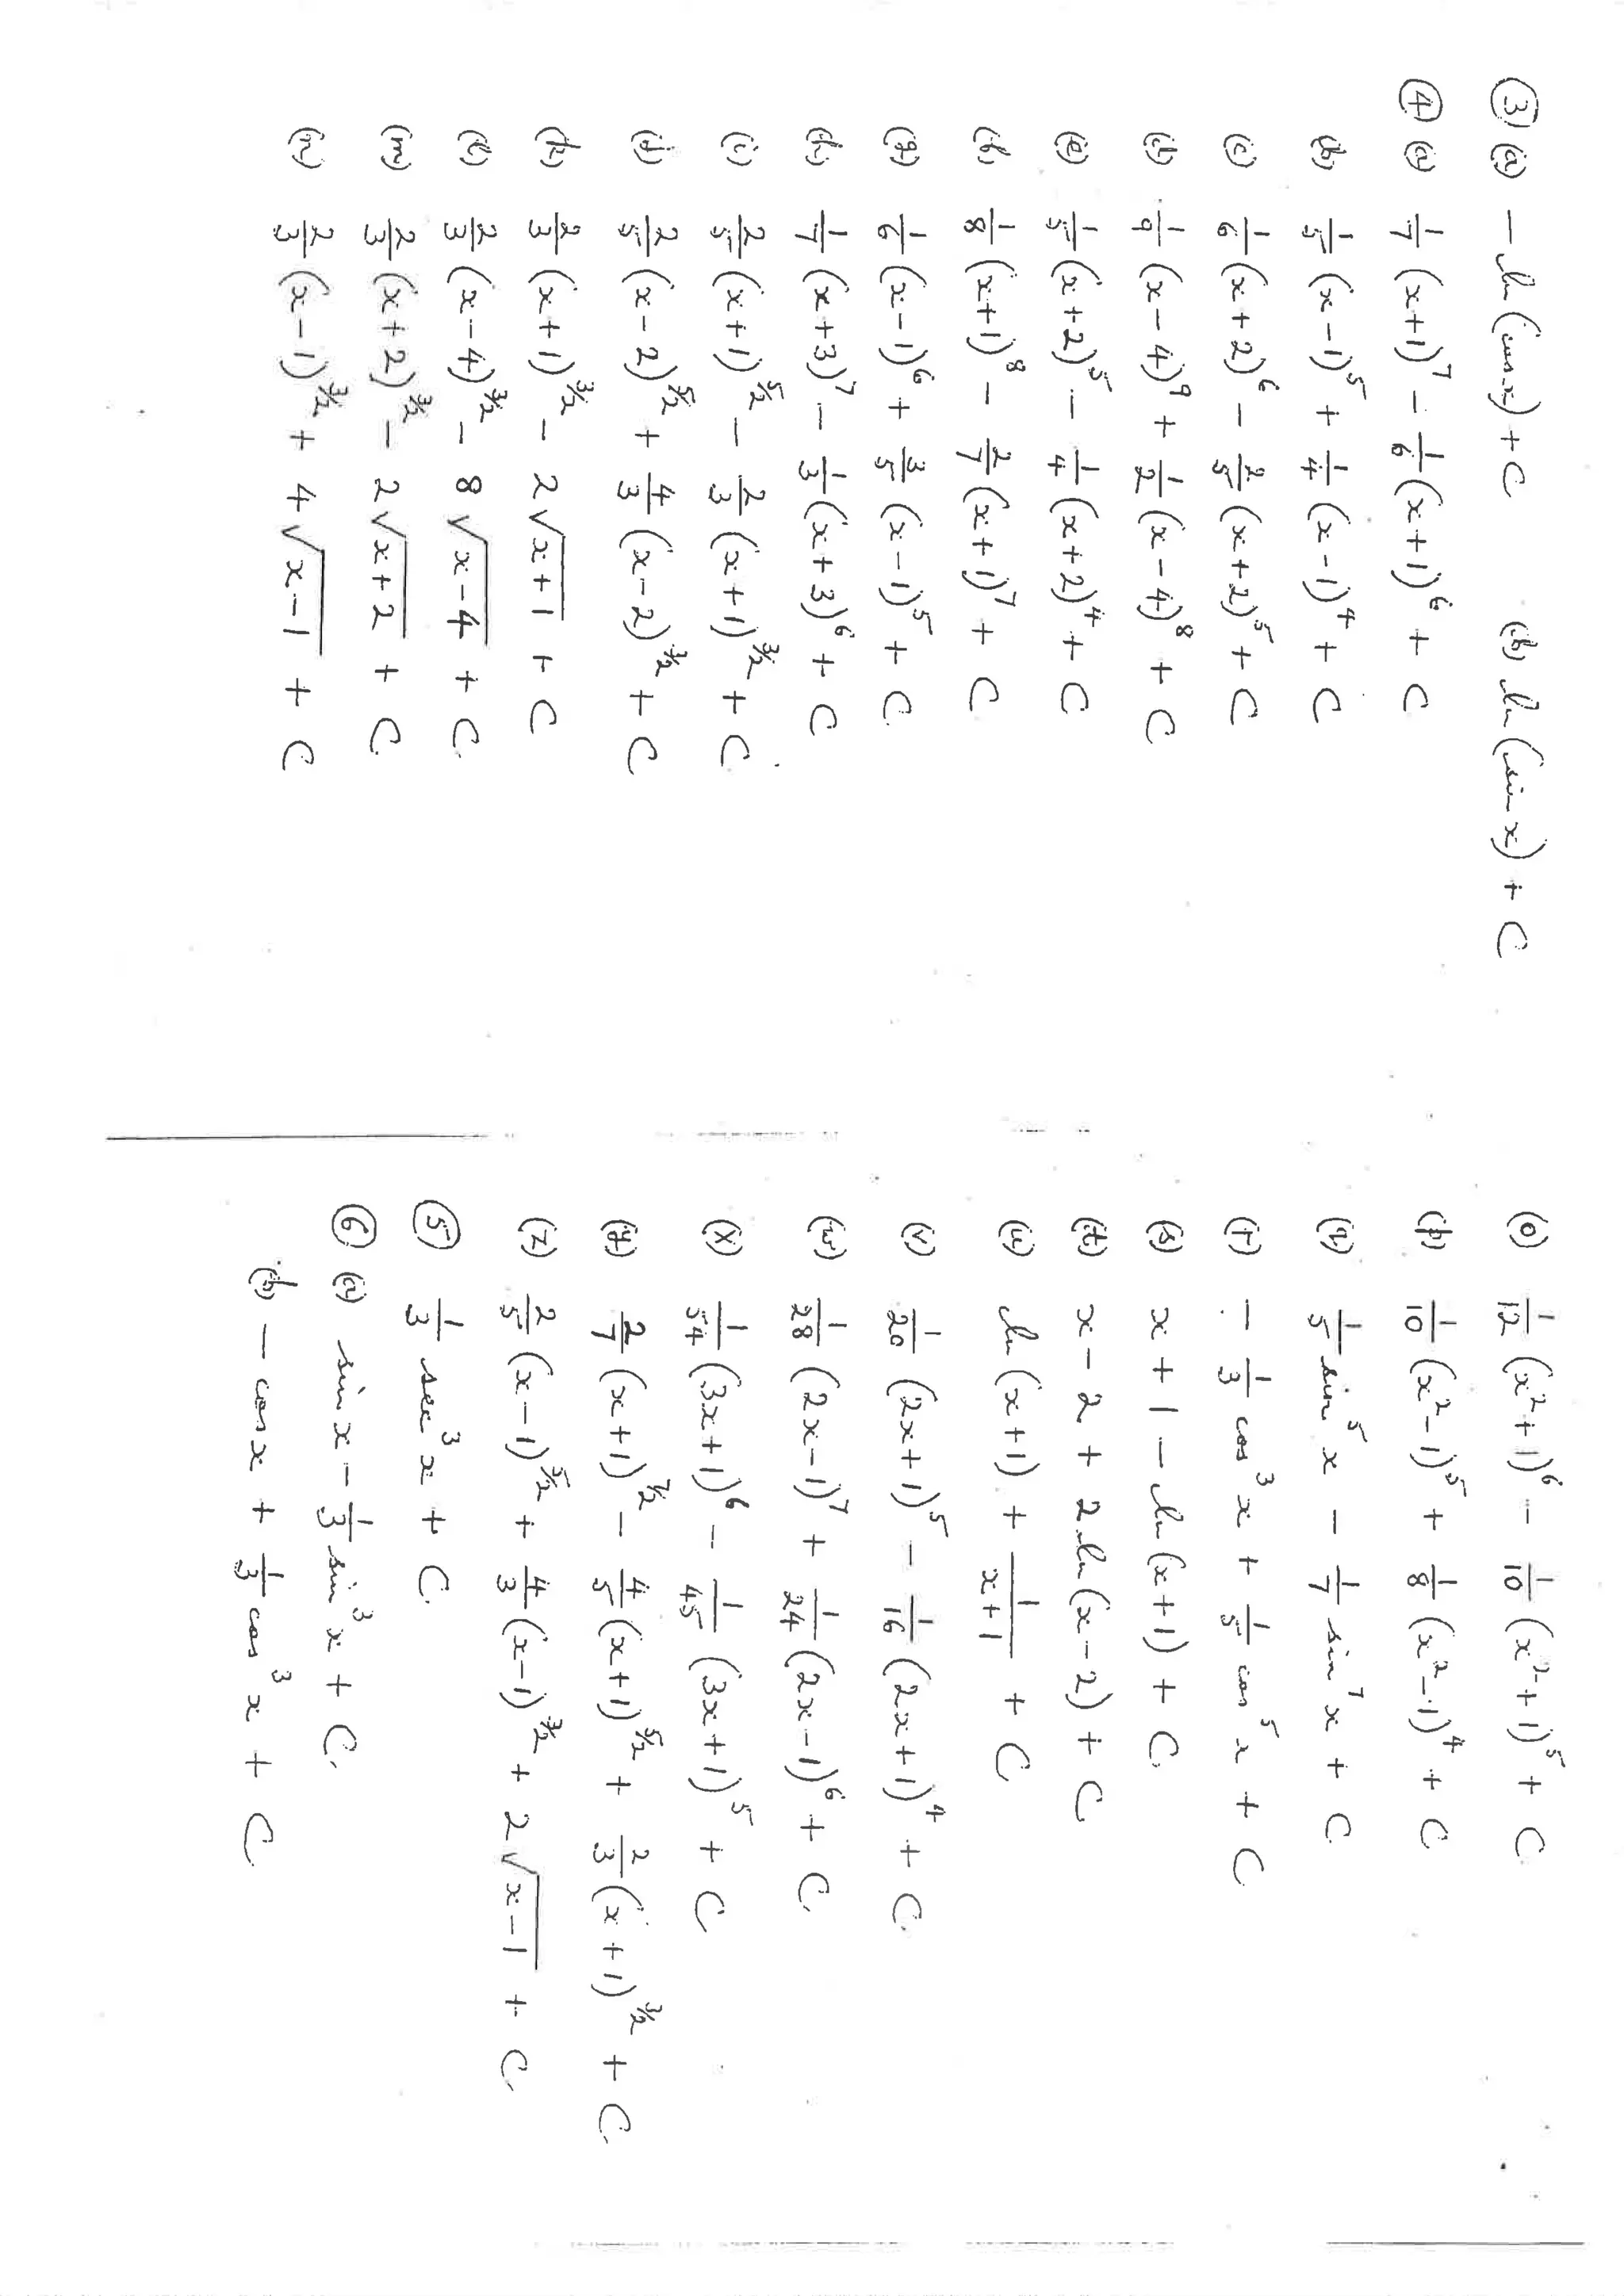 ③ (a) − ln(cos x) + C   (b) ln(sin x) + C
④ (a) 1/7 (x+1)^7 − 1/6 (x+1)^6 + C
(b) 1/5 (x−1)^5 + 1/4 (x−1)^4 + C
(c) 1/6 (x+2)^6 − 2/5 (x+2)^5 + C
(d) 1/9 (x−4)^9 + 1/2 (x−4)^8 + C
(e) 1/5 (x+2)^5 − 1/4 (x+2)^4 + C
(f) 1/8 (x+1)^8 − 2/7 (x+1)^7 + C
(g) 1/6 (x−1)^6 + 3/5 (x−1)^5 + C
(h) 1/7 (x+3)^7 − 1/3 (x+3)^6 + C
(i) 2/5 (x+1)^5/2 − 2/3 (x+1)^3/2 + C
(j) 2/5 (x−2)^5/2 + 4/3 (x−2)^3/2 + C
(k) 2/3 (x+1)^3/2 − 2√(x+1) + C
(l) 2/3 (x−4)^3/2 − 8√(x−4) + C
(m) 2/3 (x+2)^3/2 − 2√(x+2) + C
(n) 2/3 (x−1)^3/2 + 4√(x−1) + C
(o) 1/12 (x²+1)^6 − 1/10 (x²+1)^5 + C
(p) 1/10 (x²−1)^5 + 1/8 (x²−1)^4 + C
(q) 1/5 sin^5 x − 1/7 sin^7 x + C
(r) − 1/3 cos^3 x + 1/5 cos^5 x + C
(s) x + 1 − ln(x+1) + C
(t) x − 2 + 2 ln(x−2) + C
(u) ln(x+1) + 1/(x+1) + C
(v) 1/20 (2x+1)^5 − 1/16 (2x+1)^4 + C
(w) 1/28 (2x−1)^7 + 1/24 (2x−1)^6 + C
(x) 1/54 (3x+1)^6 − 1/45 (3x+1)^5 + C
(y) 2/7 (x+1)^7/2 − 4/5 (x+1)^5/2 + 2/3 (x+1)^3/2 + C
(z) 2/5 (x−1)^5/2 + 4/3 (x−1)^3/2 + 2√(x−1) + C
⑤ 1/3 sec^3 x + C
⑥ (a) sin x − 1/3 sin^3 x + C
(b) − cos x + 1/3 cos^3 x + C